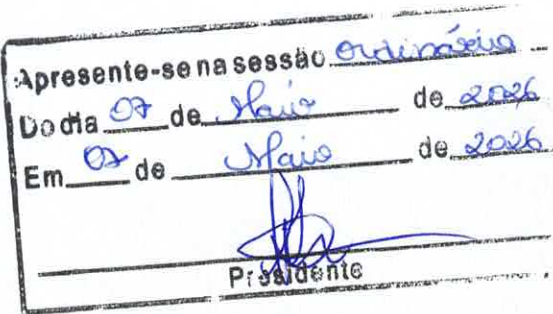 Apresente-se na sessão Ordinária
Do dia 07 de Maio de 2026
Em 07 de Maio de 2026
Presidente